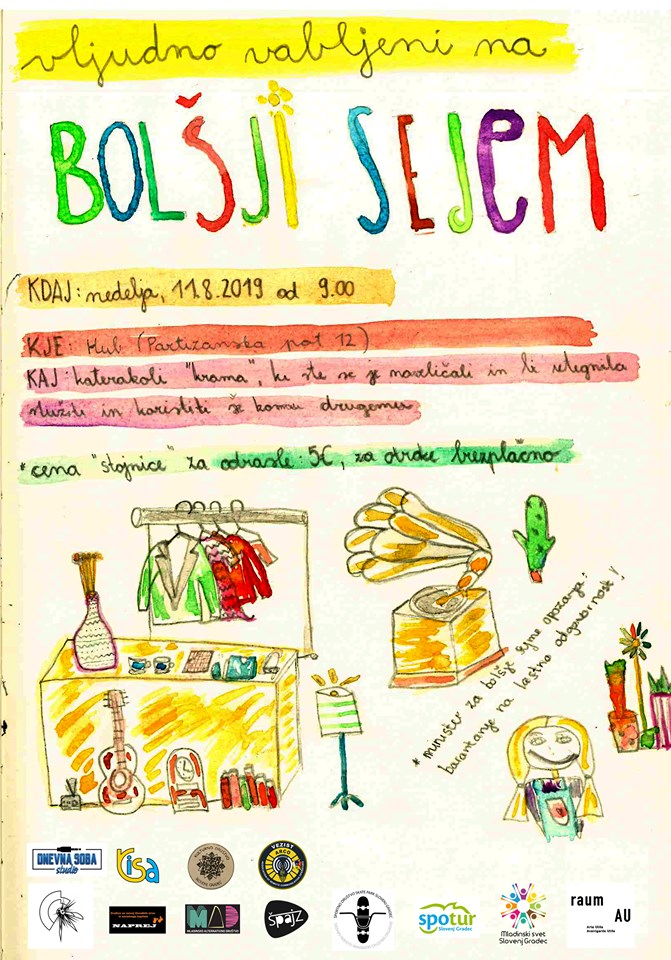 vljudno vabljeni na
BOLŠJI SEJEM
KDAJ: nedelja, 11.8.2019 od 9.00
KJE: Hub (Partizanska pot 12)
KAJ: katerakoli "krama", ki ste se je naveličali in bi utegnila
služiti in koristiti še komu drugemu
*cena "stojnice" za odrasle: 5€, za otroke brezplačno
*minister za bolšje sejme opozarja:
barantanje na lastno odgovornost!
DNEVNA SOBA
studio
risa
VEZIST
NAPREJ
MAD
MLADINSKO ALTERNATIVNO DRUŠTVO
špajz
spotur
Slovenj Gradec
Mladinski svet
Slovenj Gradec
raum
AU